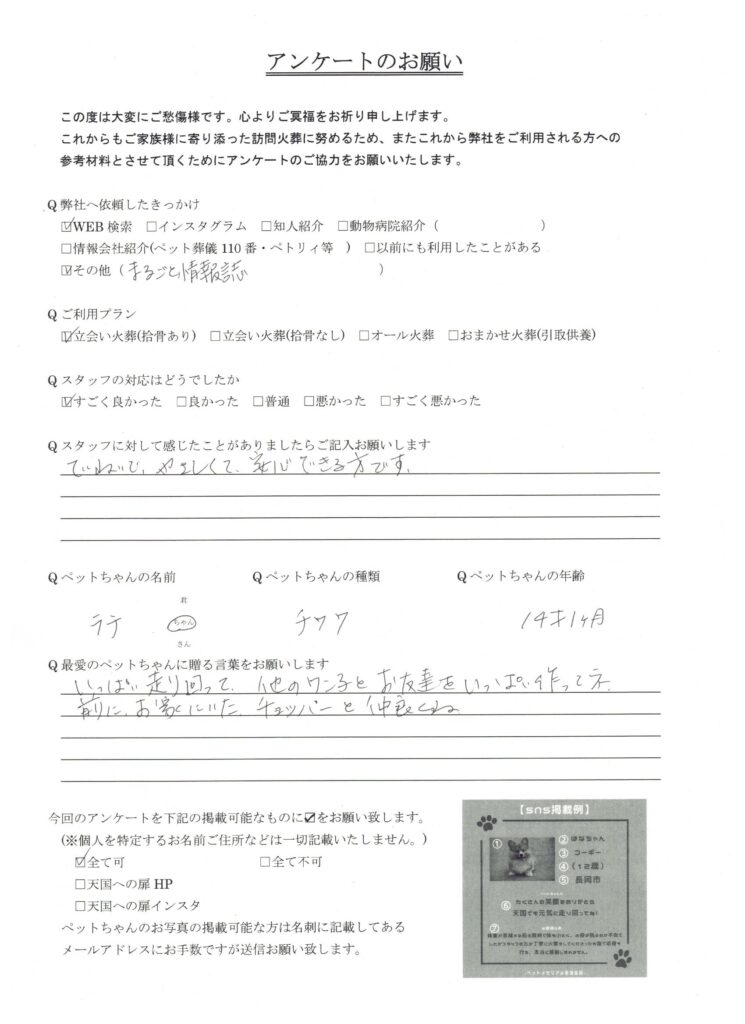 アンケートのお願い
この度は大変にご愁傷様です。心よりご冥福をお祈り申し上げます。
これからもご家族様に寄り添った訪問火葬に努めるため、またこれから弊社をご利用される方への
参考材料とさせて頂くためにアンケートのご協力をお願いいたします。
Q 弊社へ依頼したきっかけ
☑WEB 検索 □インスタグラム □知人紹介 □動物病院紹介（ ）
□情報会社紹介(ペット葬儀 110 番・ペトリィ等 ) □以前にも利用したことがある
☑その他（まるごと情報誌 ）
Q ご利用プラン
☑立会い火葬(拾骨あり) □立会い火葬(拾骨なし) □オール火葬 □おまかせ火葬(引取供養)
Q スタッフの対応はどうでしたか
☑すごく良かった □良かった □普通 □悪かった □すごく悪かった
Q スタッフに対して感じたことがありましたらご記入お願いします
ていねいで、やさしくて、安心できる方です。
Q ペットちゃんの名前 Q ペットちゃんの種類 Q ペットちゃんの年齢
君
ラテ ちゃん チワワ 14才1ヶ月
さん
Q 最愛のペットちゃんに贈る言葉をお願いします
いっぱい走り回って、他のワン子とお友達をいっぱい作ってネ、
前に、お家にいた、チョッパーと仲良くね
今回のアンケートを下記の掲載可能なものに☑をお願い致します。
(※個人を特定するお名前ご住所などは一切記載いたしません。)
☑全て可 □全て不可
□天国への扉 HP
□天国への扉インスタ
ペットちゃんのお写真の掲載可能な方は名刺に記載してある
メールアドレスにお手数ですが送信お願い致します。
【sns掲載例】
① ② はなちゃん
③ コーギー
④ （12歳）
⑤ 長岡市
⑥ たくさんの笑顔をありがとね
天国でも元気に走り回ってね！
⑦